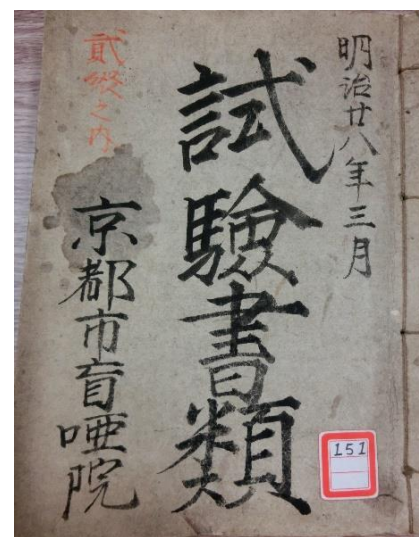 明治廿八年三月
試驗書類
貳綴之内
京都市盲唖院
151